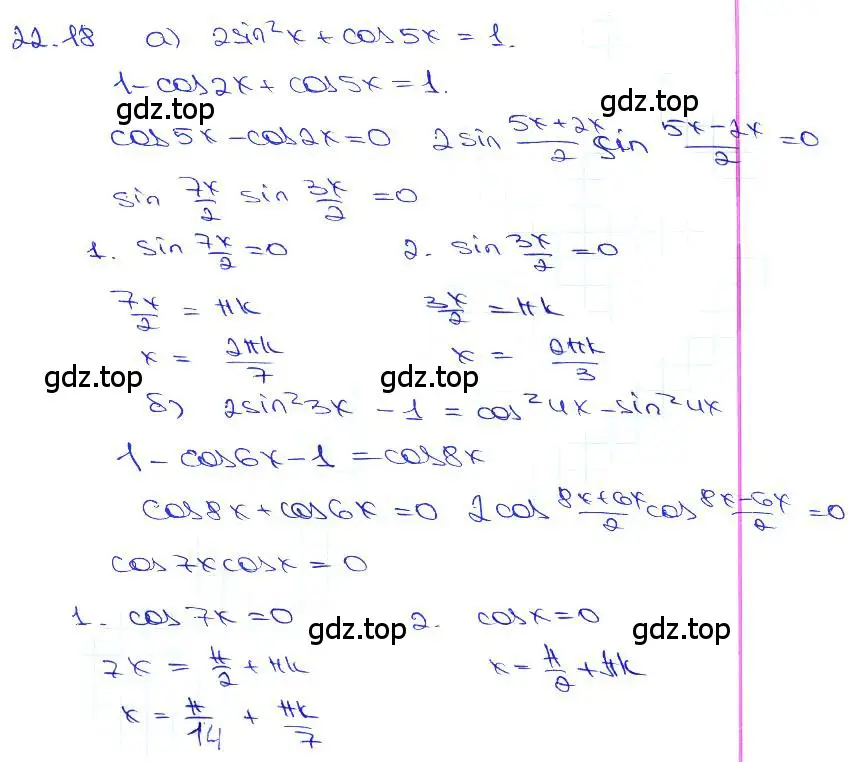 22.18 а) 2sin²x + cos5x = 1.
1 - cos2x + cos5x = 1.
gdz.top gdz.top
cos5x - cos2x = 0 2 sin (5x+2x)/2 sin (5x-2x)/2 = 0
sin 7x/2 sin 3x/2 = 0
1. sin 7x/2 = 0 2. sin 3x/2 = 0
7x/2 = πk 3x/2 = πk
x = 2πk/7 x = 2πk/3
gdz.top gdz.top
б) 2sin²3x - 1 = cos²4x - sin²4x
1 - cos6x - 1 = cos8x
cos8x + cos6x = 0 2cos (8x+6x)/2 cos (8x-6x)/2 = 0
cos7x cosx = 0
1. cos7x = 0 2. cosx = 0
gdz.top gdz.top
7x = π/2 + πk x = π/2 + πk
x = π/14 + πk/7